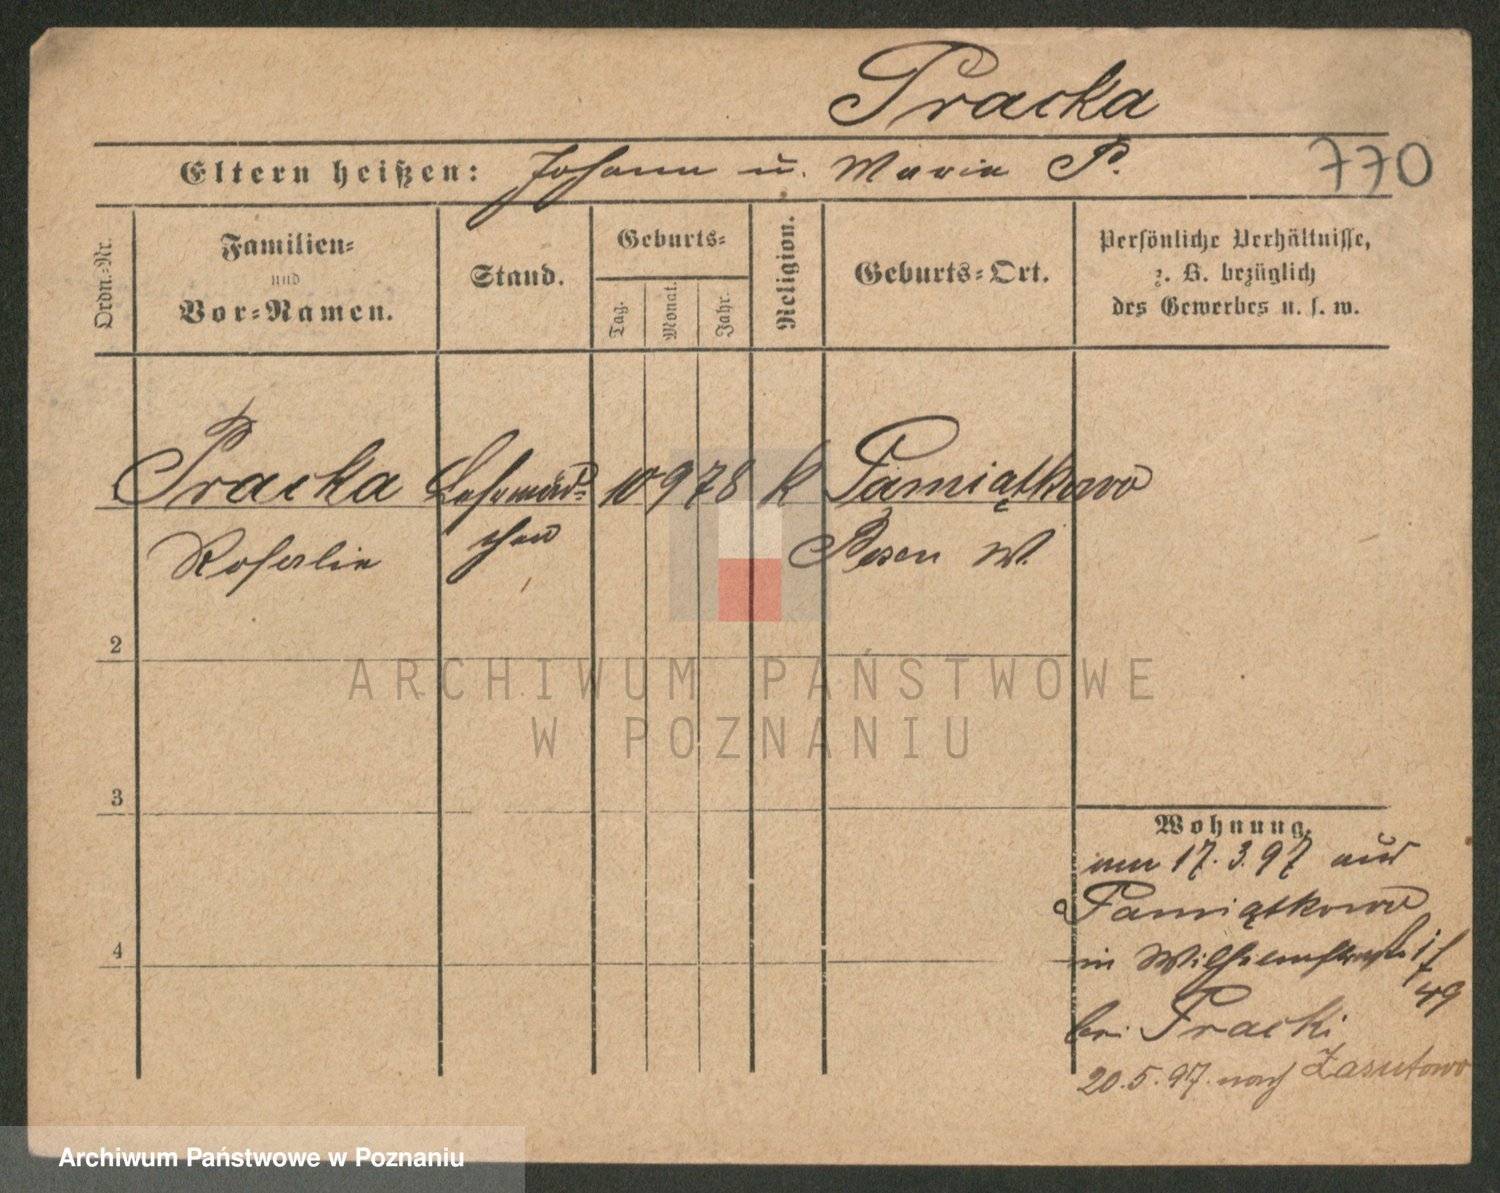 Pracka
Eltern heißen: Johann u. Maria P.
770
Ordn.-Nr.
Familien-
und
Vor-Namen.
Stand.
Geburts-
Tag.
Monat.
Jahr.
Religion.
Geburts-Ort.
Persönliche Verhältnisse,
z. B. bezüglich
des Gewerbes u. s. w.
1 Pracka Lehrmäd- 10 9 78 k Pamiątkowo
Rosalie chen Posen W.
2
3
4
Wohnung.
am 17.3.97 aus
Pamiątkowo
in Wilhelmstraße
49
bei Pracki
20.5.97. nach Zasutowo
ARCHIWUM PAŃSTWOWE
W POZNANIU
Archiwum Państwowe w Poznaniu